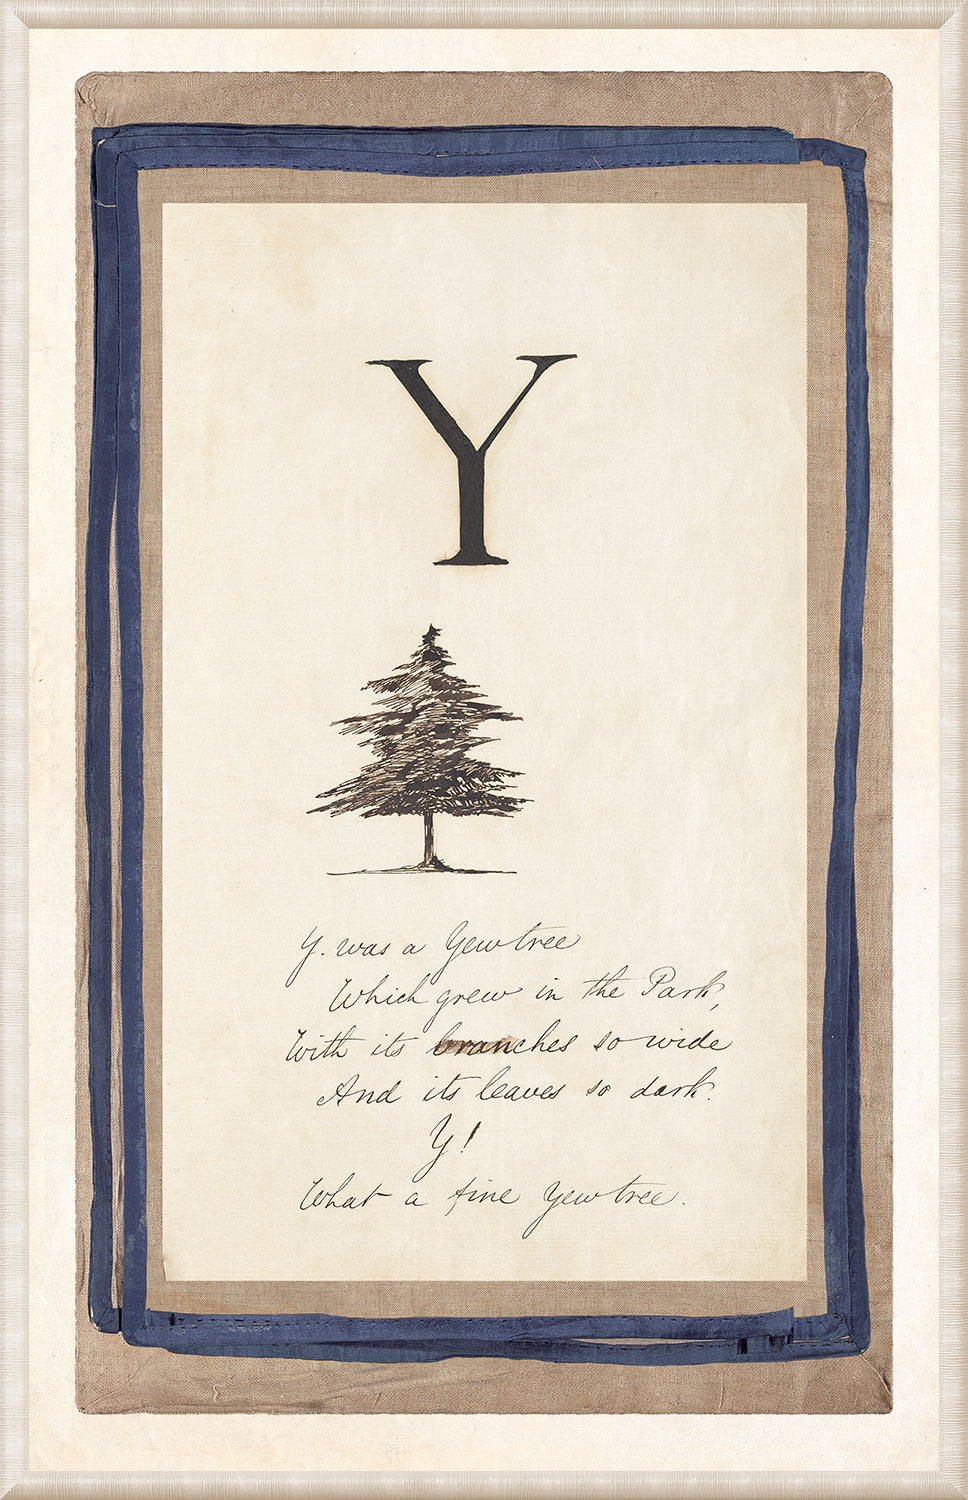 Y
Y. was a Yewtree
Which grew in the Park,
With its branches so wide
And its leaves so dark.
Y!
What a fine Yewtree.